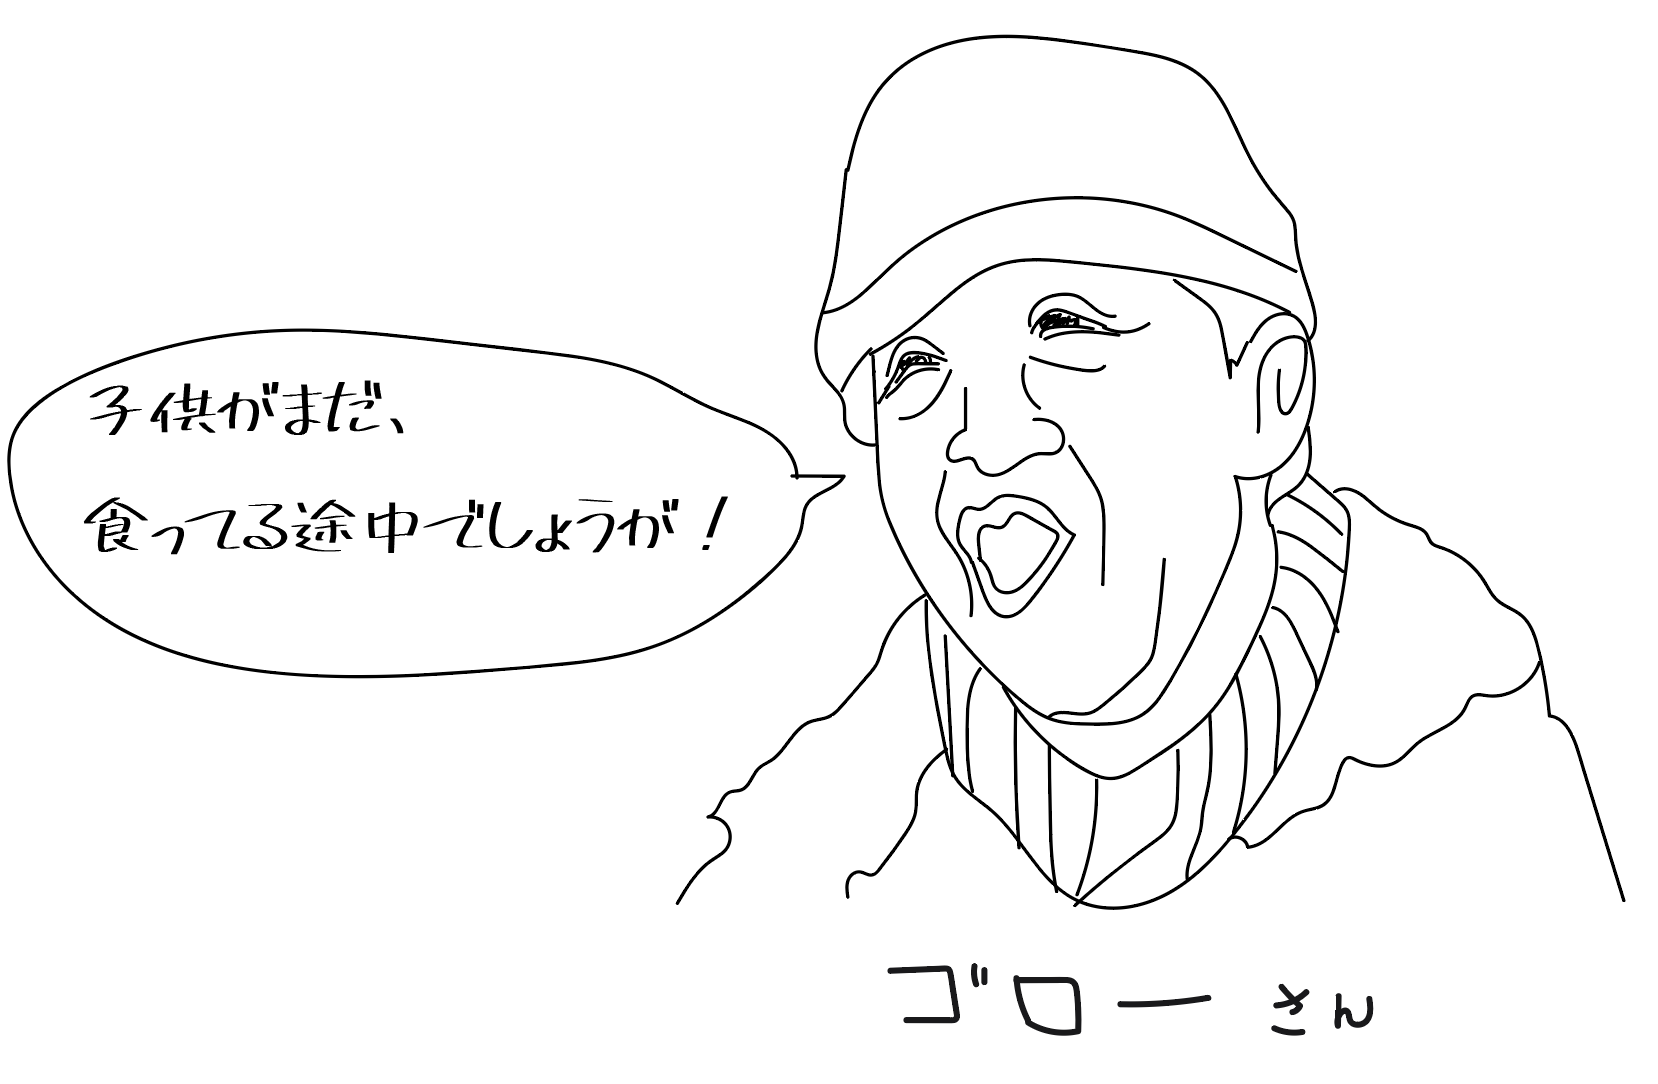 子供がまだ、
食ってる途中でしょうが！
ゴローさん